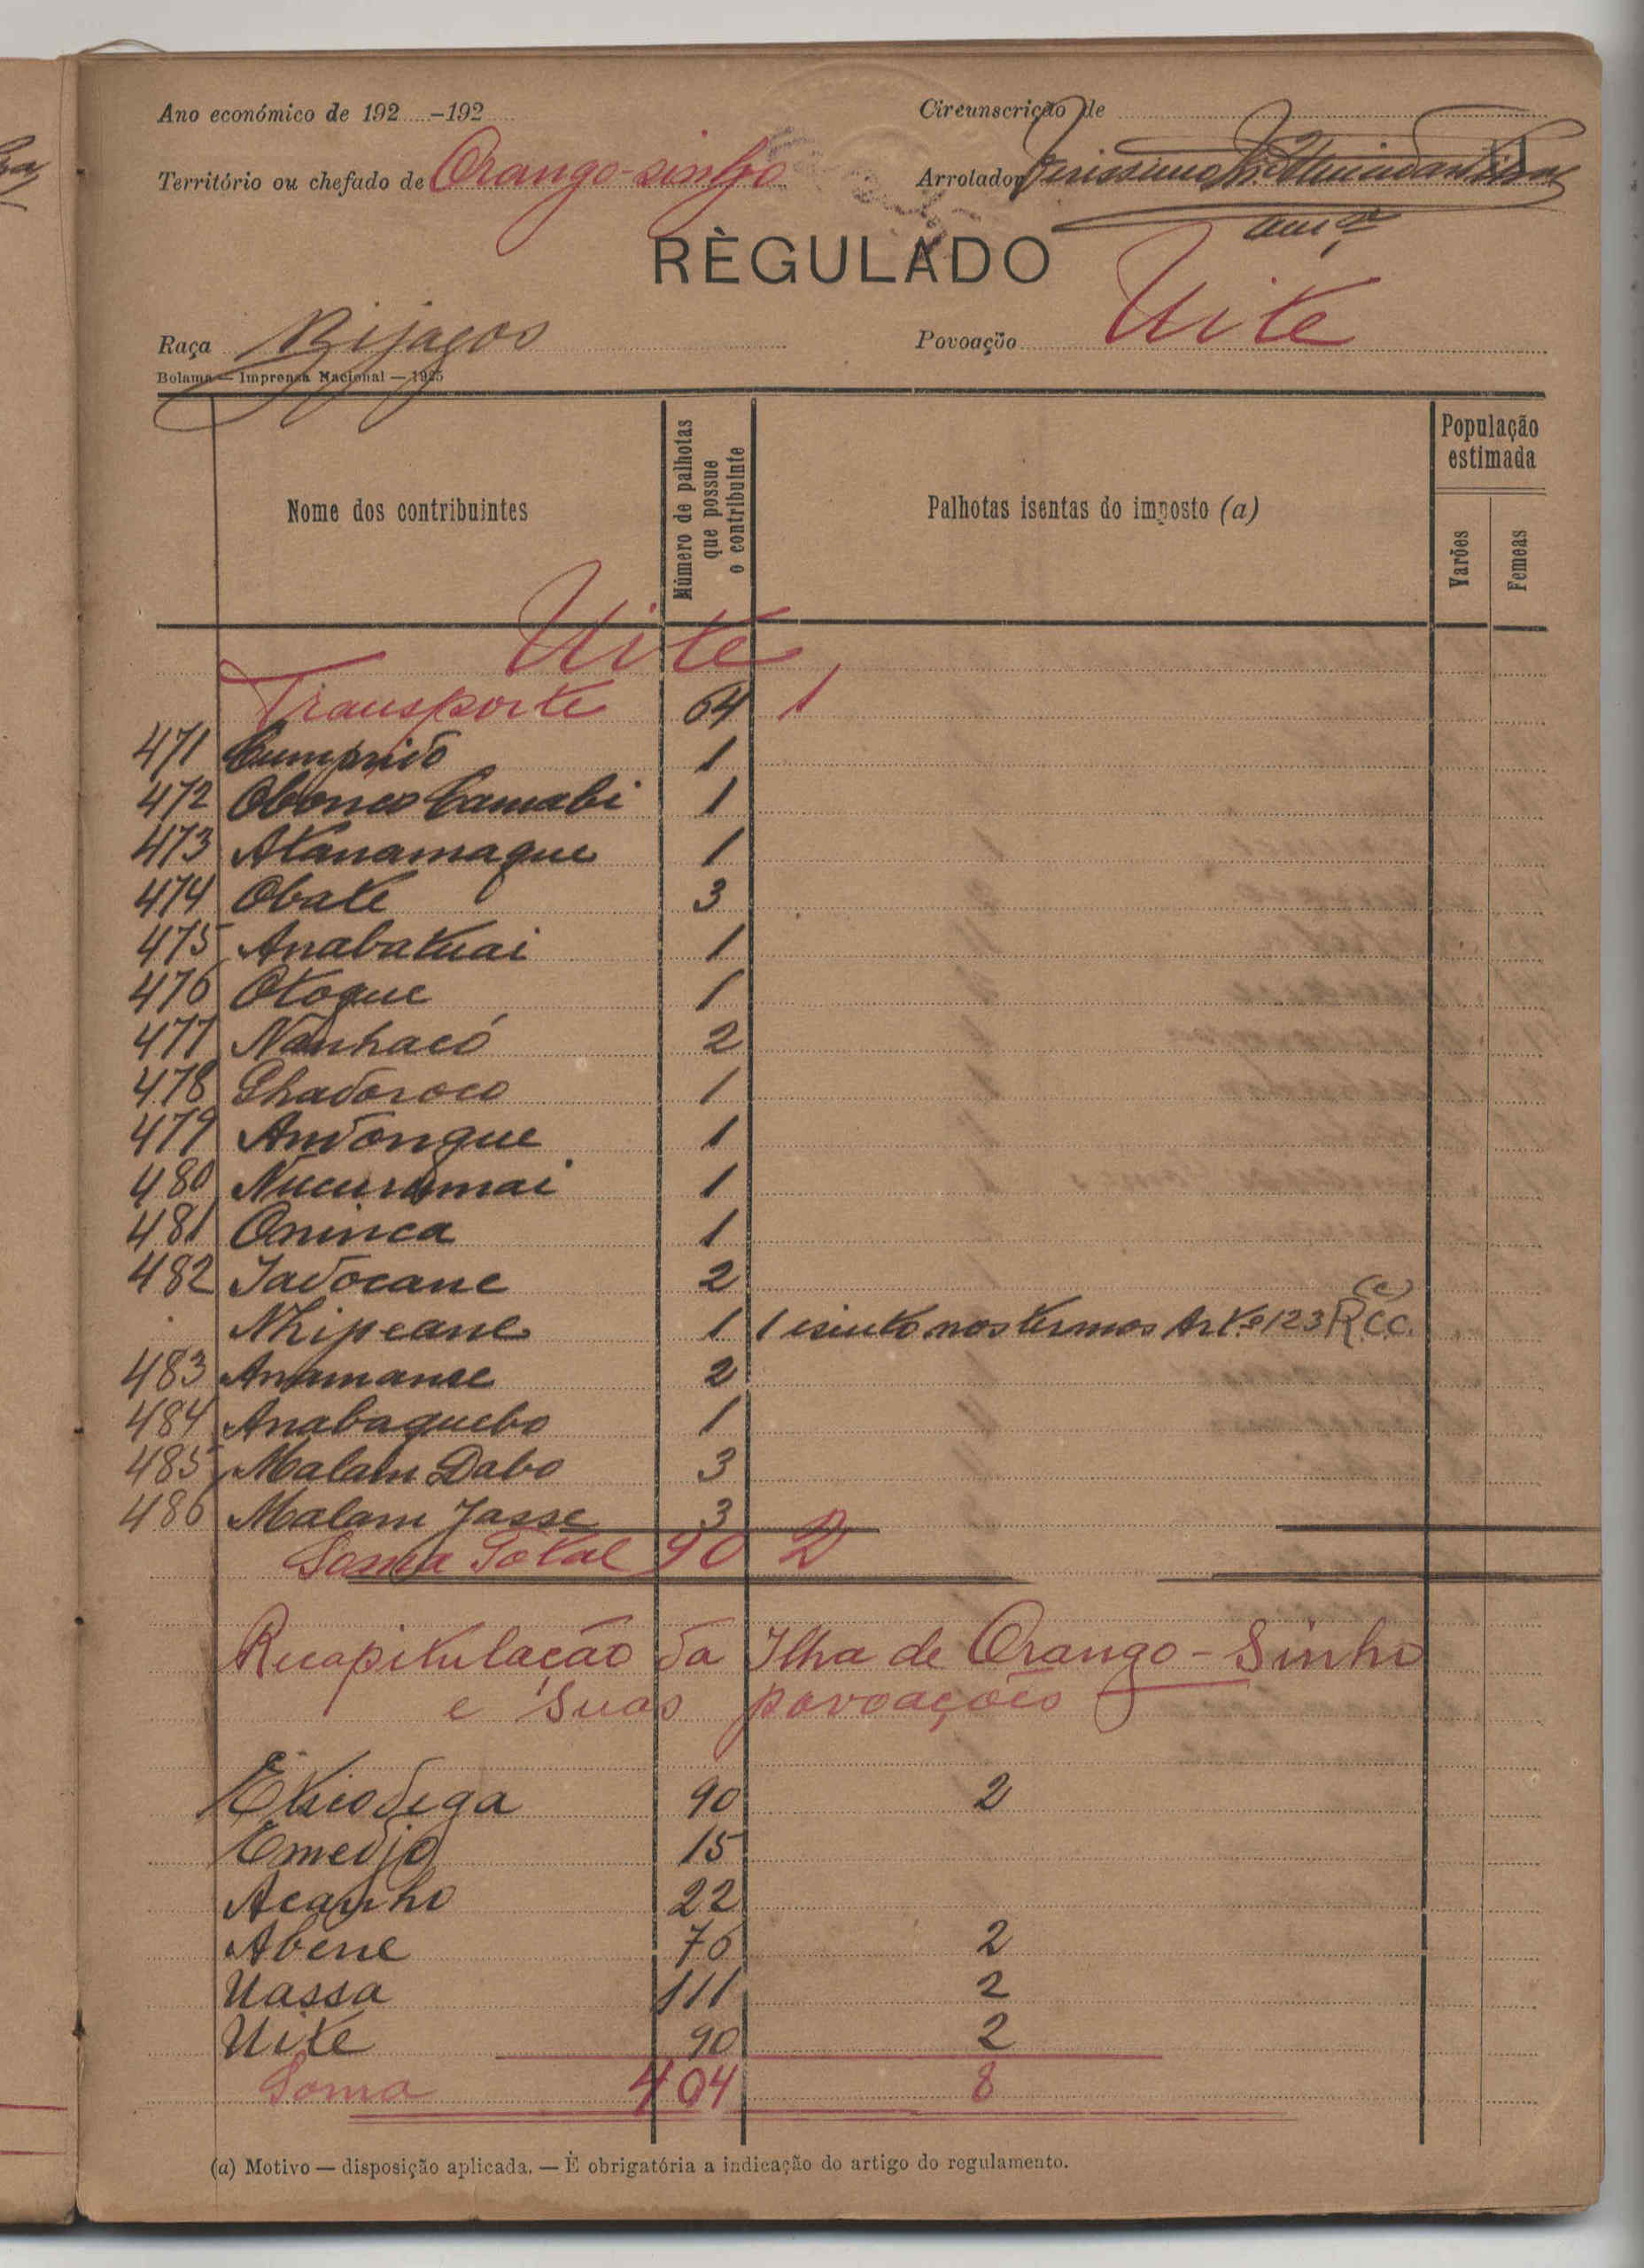 Ano económico de 192 –192
Circunscrição de
Território ou chefado de Orango-sinho
Arrolador
RÈGULADO
Raça Bijagos
Povoação Uite
Bolama — Imprensa Nacional — 1925
Nome dos contribuintes
Número de palhotas que possue o contribuinte
Palhotas isentas do imposto (a)
População estimada
Varões
Femeas
Uite
Transporte 64 1
471 Cumprido 1
472 Obono Camabi 1
473 Atanamaque 1
474 Obate 3
475 Anabatuai 1
476 Otoque 1
477 Nanhacó 2
478 Chadoroco 1
479 Andongue 1
480 Nucurumai 1
481 Oninca 1
482 Jadocane 2
Nhipeane 1 1 isento nos termos Artº 123 R.C.C. (e)
483 Anamanse 2
484 Anabaquebo 1
485 Malam Dabo 3
486 Malam Jasse 3
Soma Total 90 2
Recapitulação da Ilha de Orango-Sinho
e suas povoações
Eticodega 90 2
Emedjo 15
Acanho 22
Abene 76 2
Uassa 111 2
Uite 90 2
Soma 404 8
(a) Motivo — disposição aplicada. — È obrigatória a indicação do artigo do regulamento.